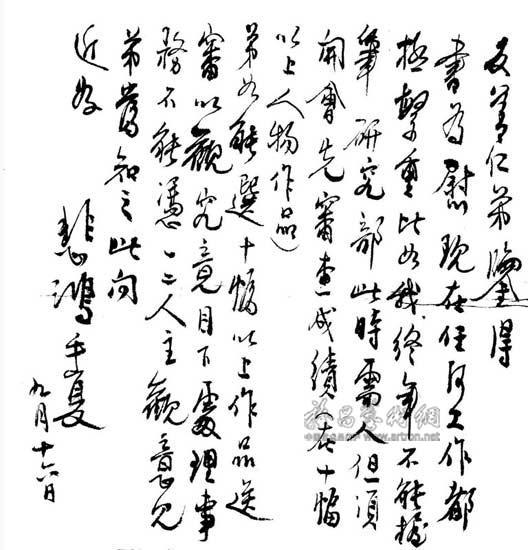 仁弟鑒得
書為慰現在任何工作都
極繁重比如我終年不能握
筆研究部此時需人但須
開會先審查成績(在十幅
以上人物作品)
弟如能選十幅以上作品送
審以觀究竟目下處理事
務不能憑一二人主觀意見
弟當知之此問
近好
悲鴻手复
九月十六日
雅昌藝術網
www.artron.net